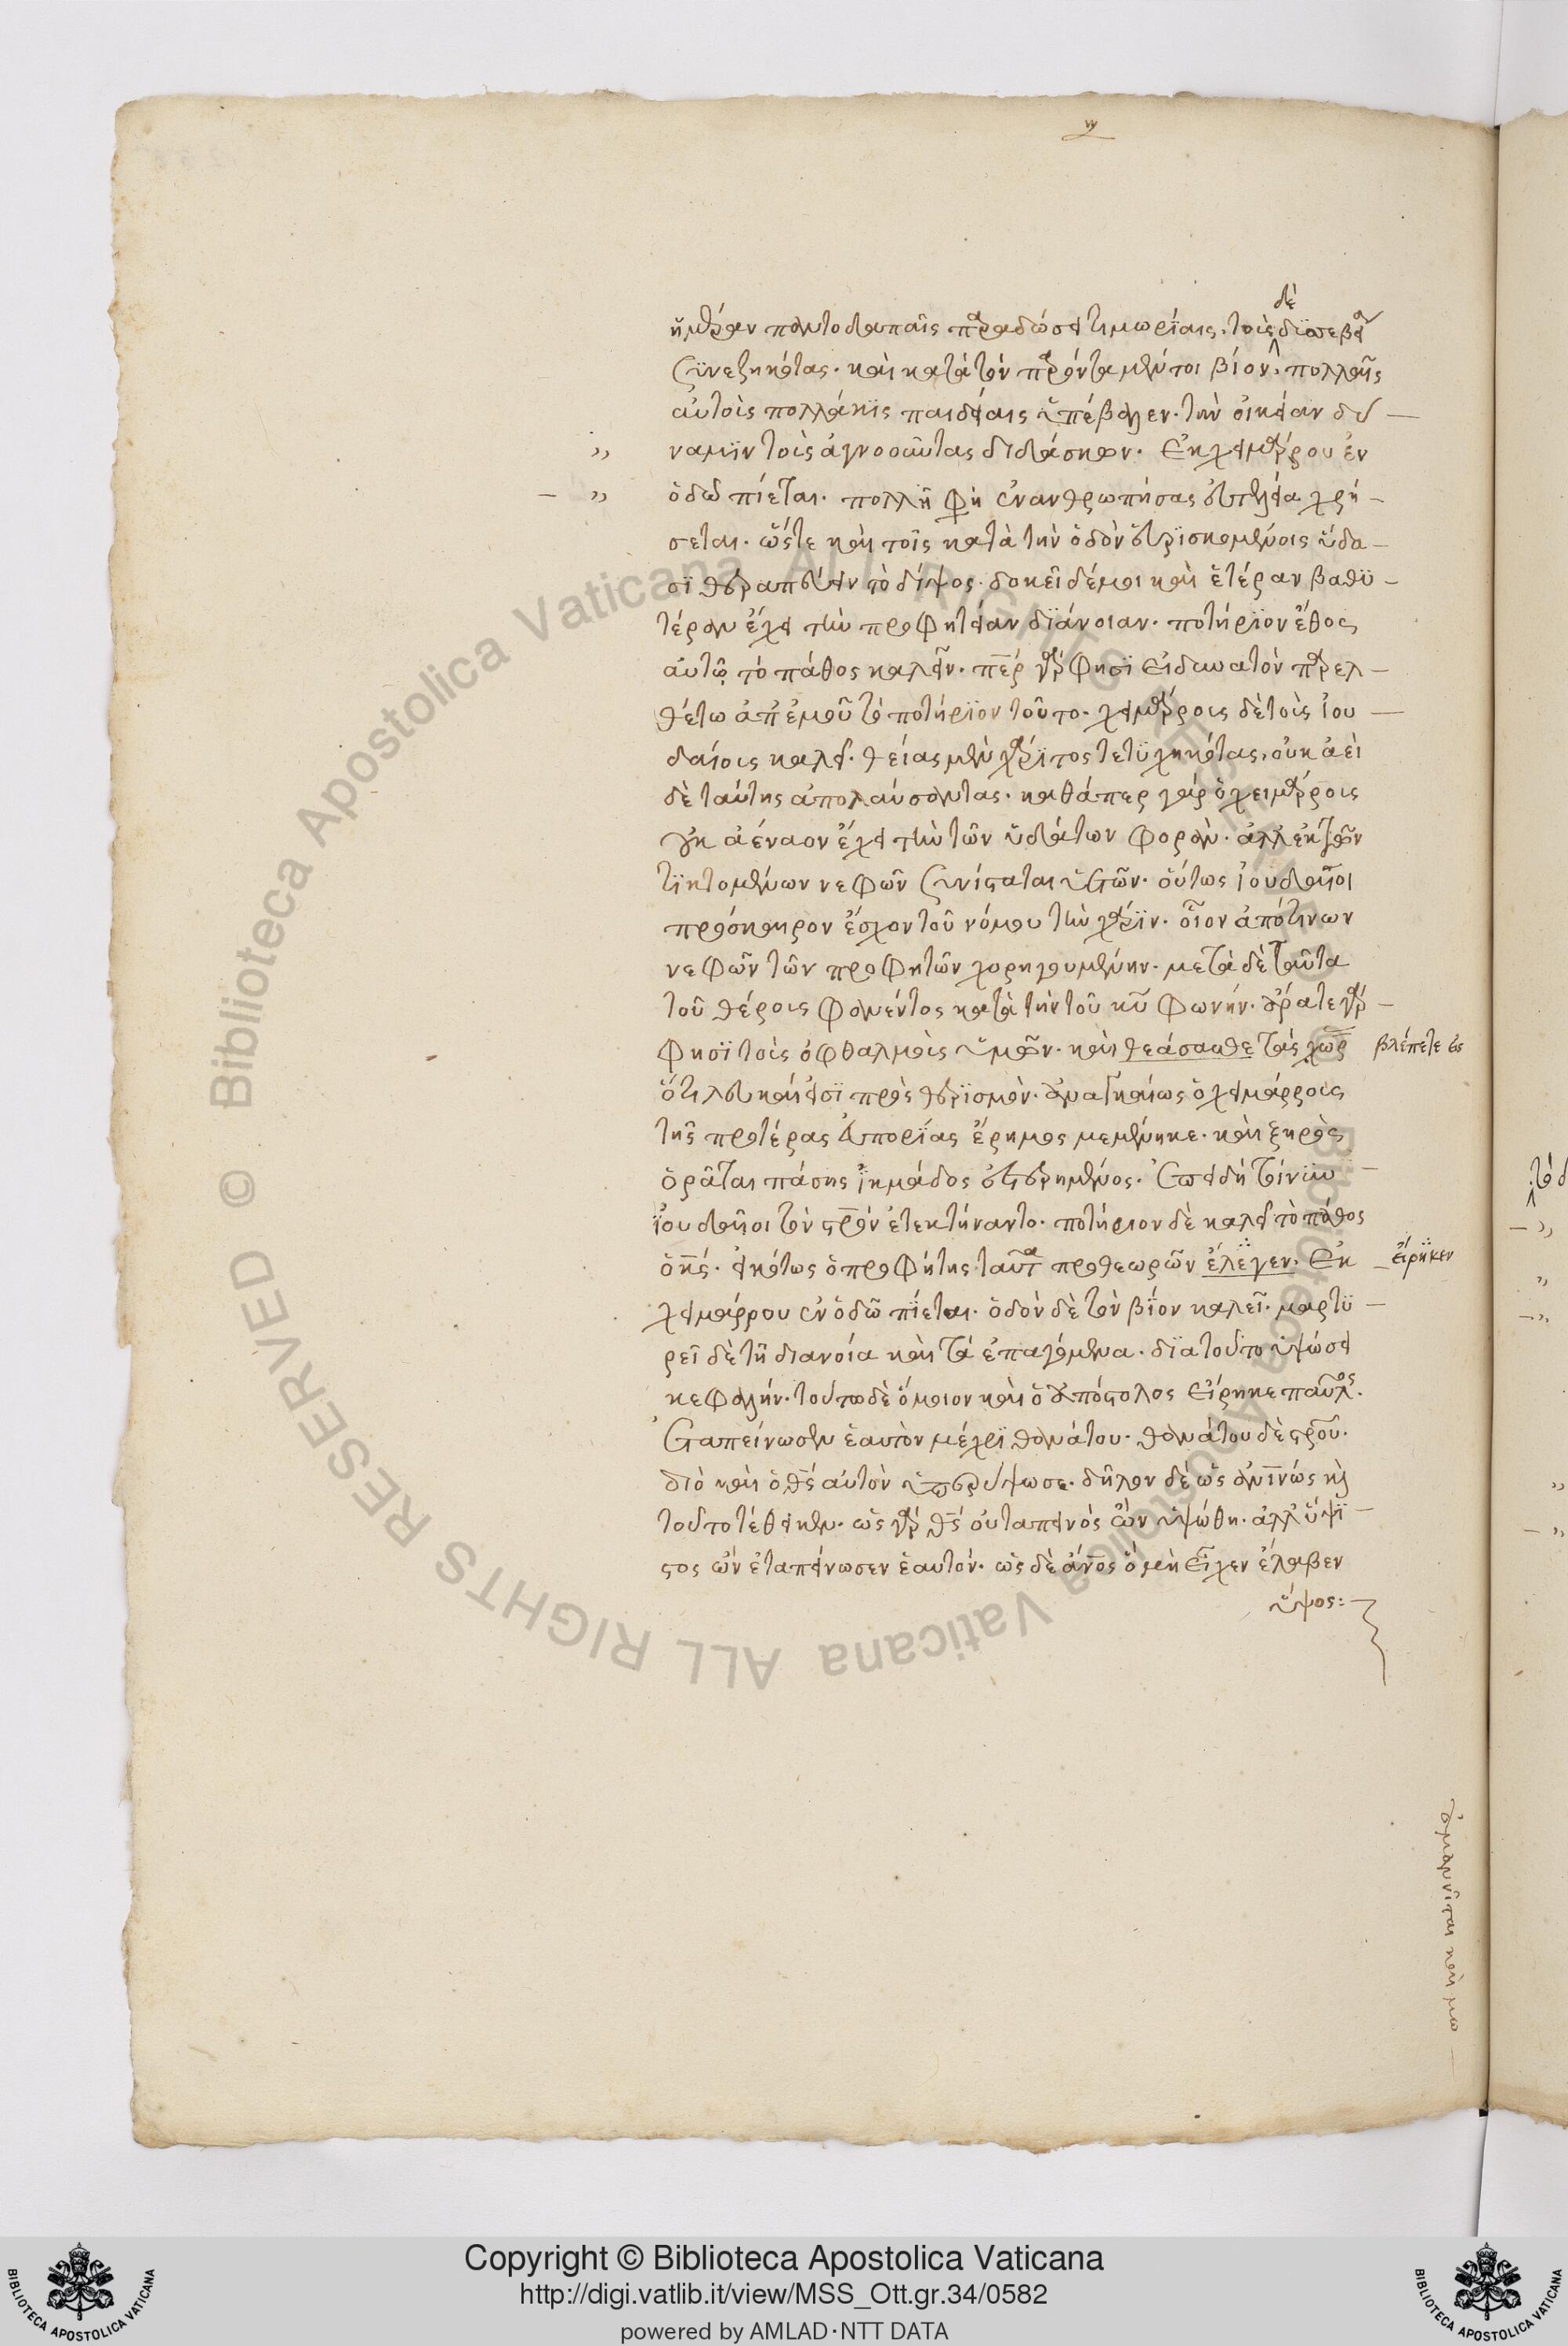 ἡμέραν παντοδαπαῖς παραδώσει τιμωρίαις. τοὺς δὲ δυσσεβείᾳ
συνεζηκότας. καὶ κατὰ τὸν παρόντα μέντοι βίον. πολλαῖς
αὐτοὺς πολλάκις παιδείαις ὑπέβαλεν. τὴν οἰκείαν δύ
ναμιν τοὺς ἀγνοοῦντας διδάσκων. Ἐκ χειμάρρου ἐν
ὁδῷ πίεται. πολλῇ φη ἐνανθρωπήσας εὐτελείᾳ χρή
σεται. ὥστε καὶ τοῖς κατὰ τὴν ὁδὸν εὑρισκομένοις ὕδα
σι θεραπεύειν τὸ δίψος. δοκεῖ δέ μοι καὶ ἑτέραν βαθυ
τέραν ἔχει τὴν προφητείαν διάνοιαν. ποτήριον ἔθος
αὐτῷ τὸ πάθος καλεῖν. περ γάρ φησι εἰ δυνατὸν παρελ
θέτω ἀπ' ἐμοῦ τὸ ποτήριον τοῦτο. χειμάρρους δὲ τοὺς ἰου
δαίους καλεῖ. θείας μὲν χάριτος τετυχηκότας, οὐκ ἀεὶ
δὲ ταύτης ἀπολαύσοντας. καθάπερ γὰρ ὁ χειμάρρους
οὐκ ἀέναον ἔχει τὴν τῶν ὑδάτων φοράν. ἀλλ' ἐκ τῶν
τικτομένων νεφῶν συνίσταται ὑετῶν. οὕτως ἰουδαῖοι
πρόσκαιρον ἔσχον τοῦ νόμου τὴν χάριν. οἷον ἀπό τινων
νεφῶν τῶν προφητῶν χορηγουμένην. μετὰ δὲ ταῦτα
τοῦ θέρους φανέντος κατὰ τὴν τοῦ κυ φωνήν. ἄρατε γάρ
φησι τοὺς ὀφθαλμοὺς ὑμῶν. καὶ θεάσασθε τὰς χώρ βλέπετε εἰς
ὅτι λευκαί εἰσι πρὸς θερισμόν. ἀναγκαίως ὁ χειμάρρους
τῆς προτέρας εὐπορίας ἔρημος μεμένηκε. καὶ ξηρὸς
ὁρᾶται πάσης ἰκμάδος ἐστερημένος. ἐπειδὴ τοίνυν
ἰουδαῖοι τὸν στρὸν ἐτεκτήναντο. ποτήριον δὲ καλεῖ τὸ πάθος
ὁ κς. εἰκότως ὁ προφήτης ταῦτα προθεωρῶν ἔλεγεν. Ἐκ εἴρηκεν
χειμάρρου ἐν ὁδῷ πίεται. ὁδὸν δὲ τὸν βίον καλεῖ. μαρτυ
ρεῖ δὲ τῇ διανοίᾳ καὶ τὰ ἐπαγόμενα. διατοῦτο ὑψώσει
κεφαλήν. τούτῳ δὲ ὅμοιον καὶ ὁ ἀπόστολος εἴρηκε παῦλος.
Ἐταπείνωσεν ἑαυτὸν μέχρι θανάτου. θανάτου δὲ στροῦ.
διὸ καὶ ὁ θς αὐτὸν ὑπερύψωσε. δῆλον δὲ ὡς ἀνινως καὶ
τοῦτο τέθεικεν. ὡς γὰρ θς οὐ ταπεινὸς ὢν ὑψώθη. ἀλλ' ὕψι
στος ὢν ἐταπείνωσεν ἑαυτόν. ὡς δὲ ἄνος ὃ μὴ εἶχεν ἔλαβεν
ὕψος:
ἀμμανῖται καὶ μω
Copyright © Biblioteca Apostolica Vaticana
http://digi.vatlib.it/view/MSS_Ott.gr.34/0582
powered by AMLAD·NTT DATA
BIBLIOTECA APOSTOLICA VATICANA
BIBLIOTECA APOSTOLICA VATICANA
Biblioteca Apostolica Vaticana ALL RIGHTS RESERVED ©
Biblioteca Apostolica Vaticana ALL RIGHTS RESERVED ©